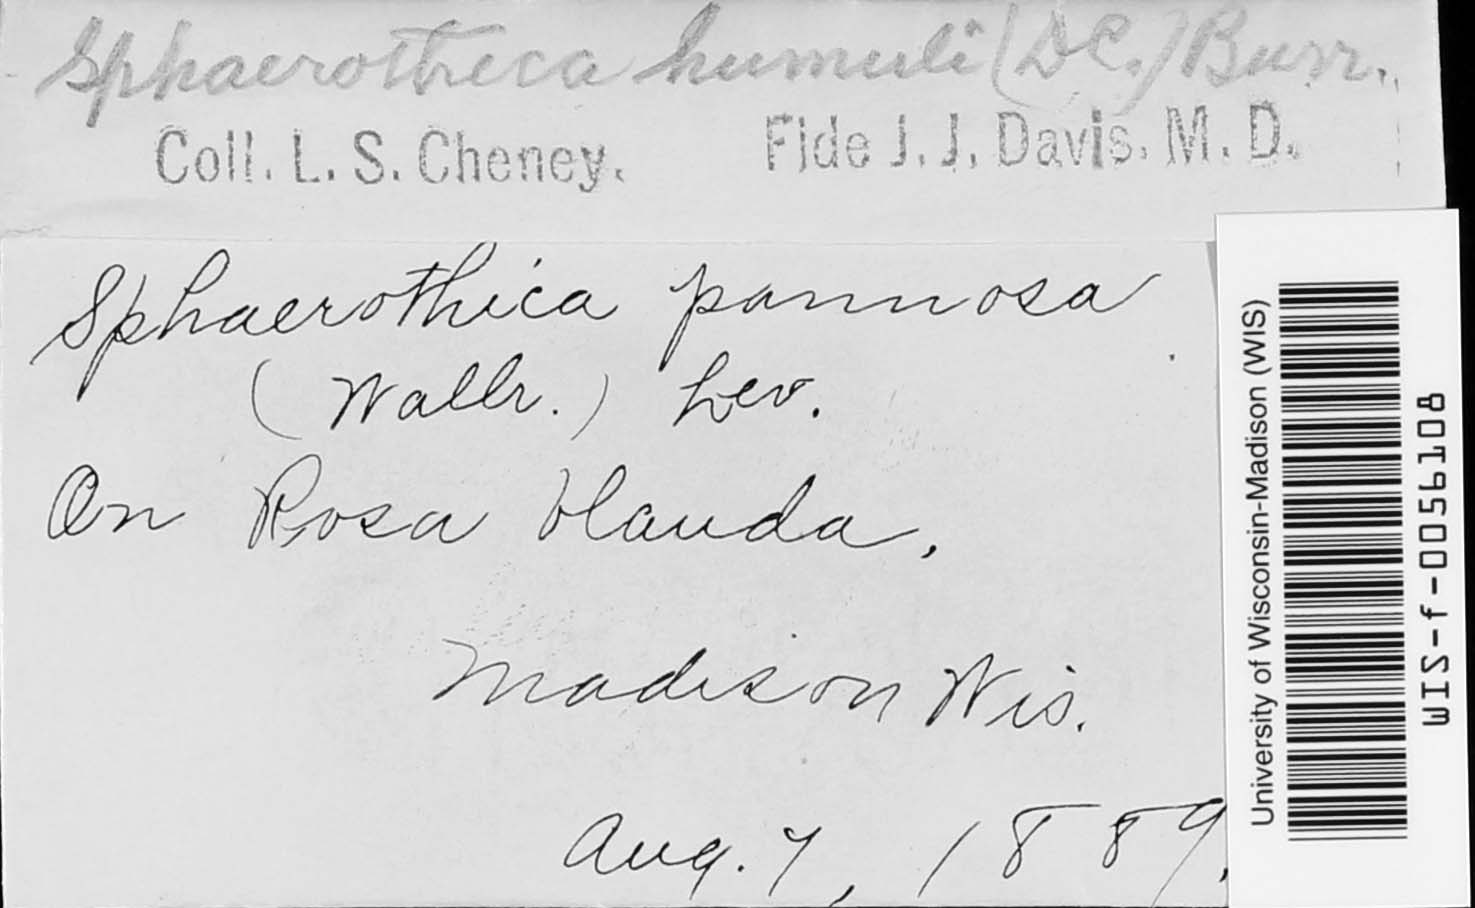 Sphaerotheca humuli (DC.) Burr.
Coll. L. S. Cheney. Fide J. J. Davis. M. D.
Sphaerothica pannosa
(Wallr.) Lev.
On Rosa blanda.
Madison Wis.
Aug. 7, 1889.
University of Wisconsin-Madison (WIS)
WIS-f-0056108